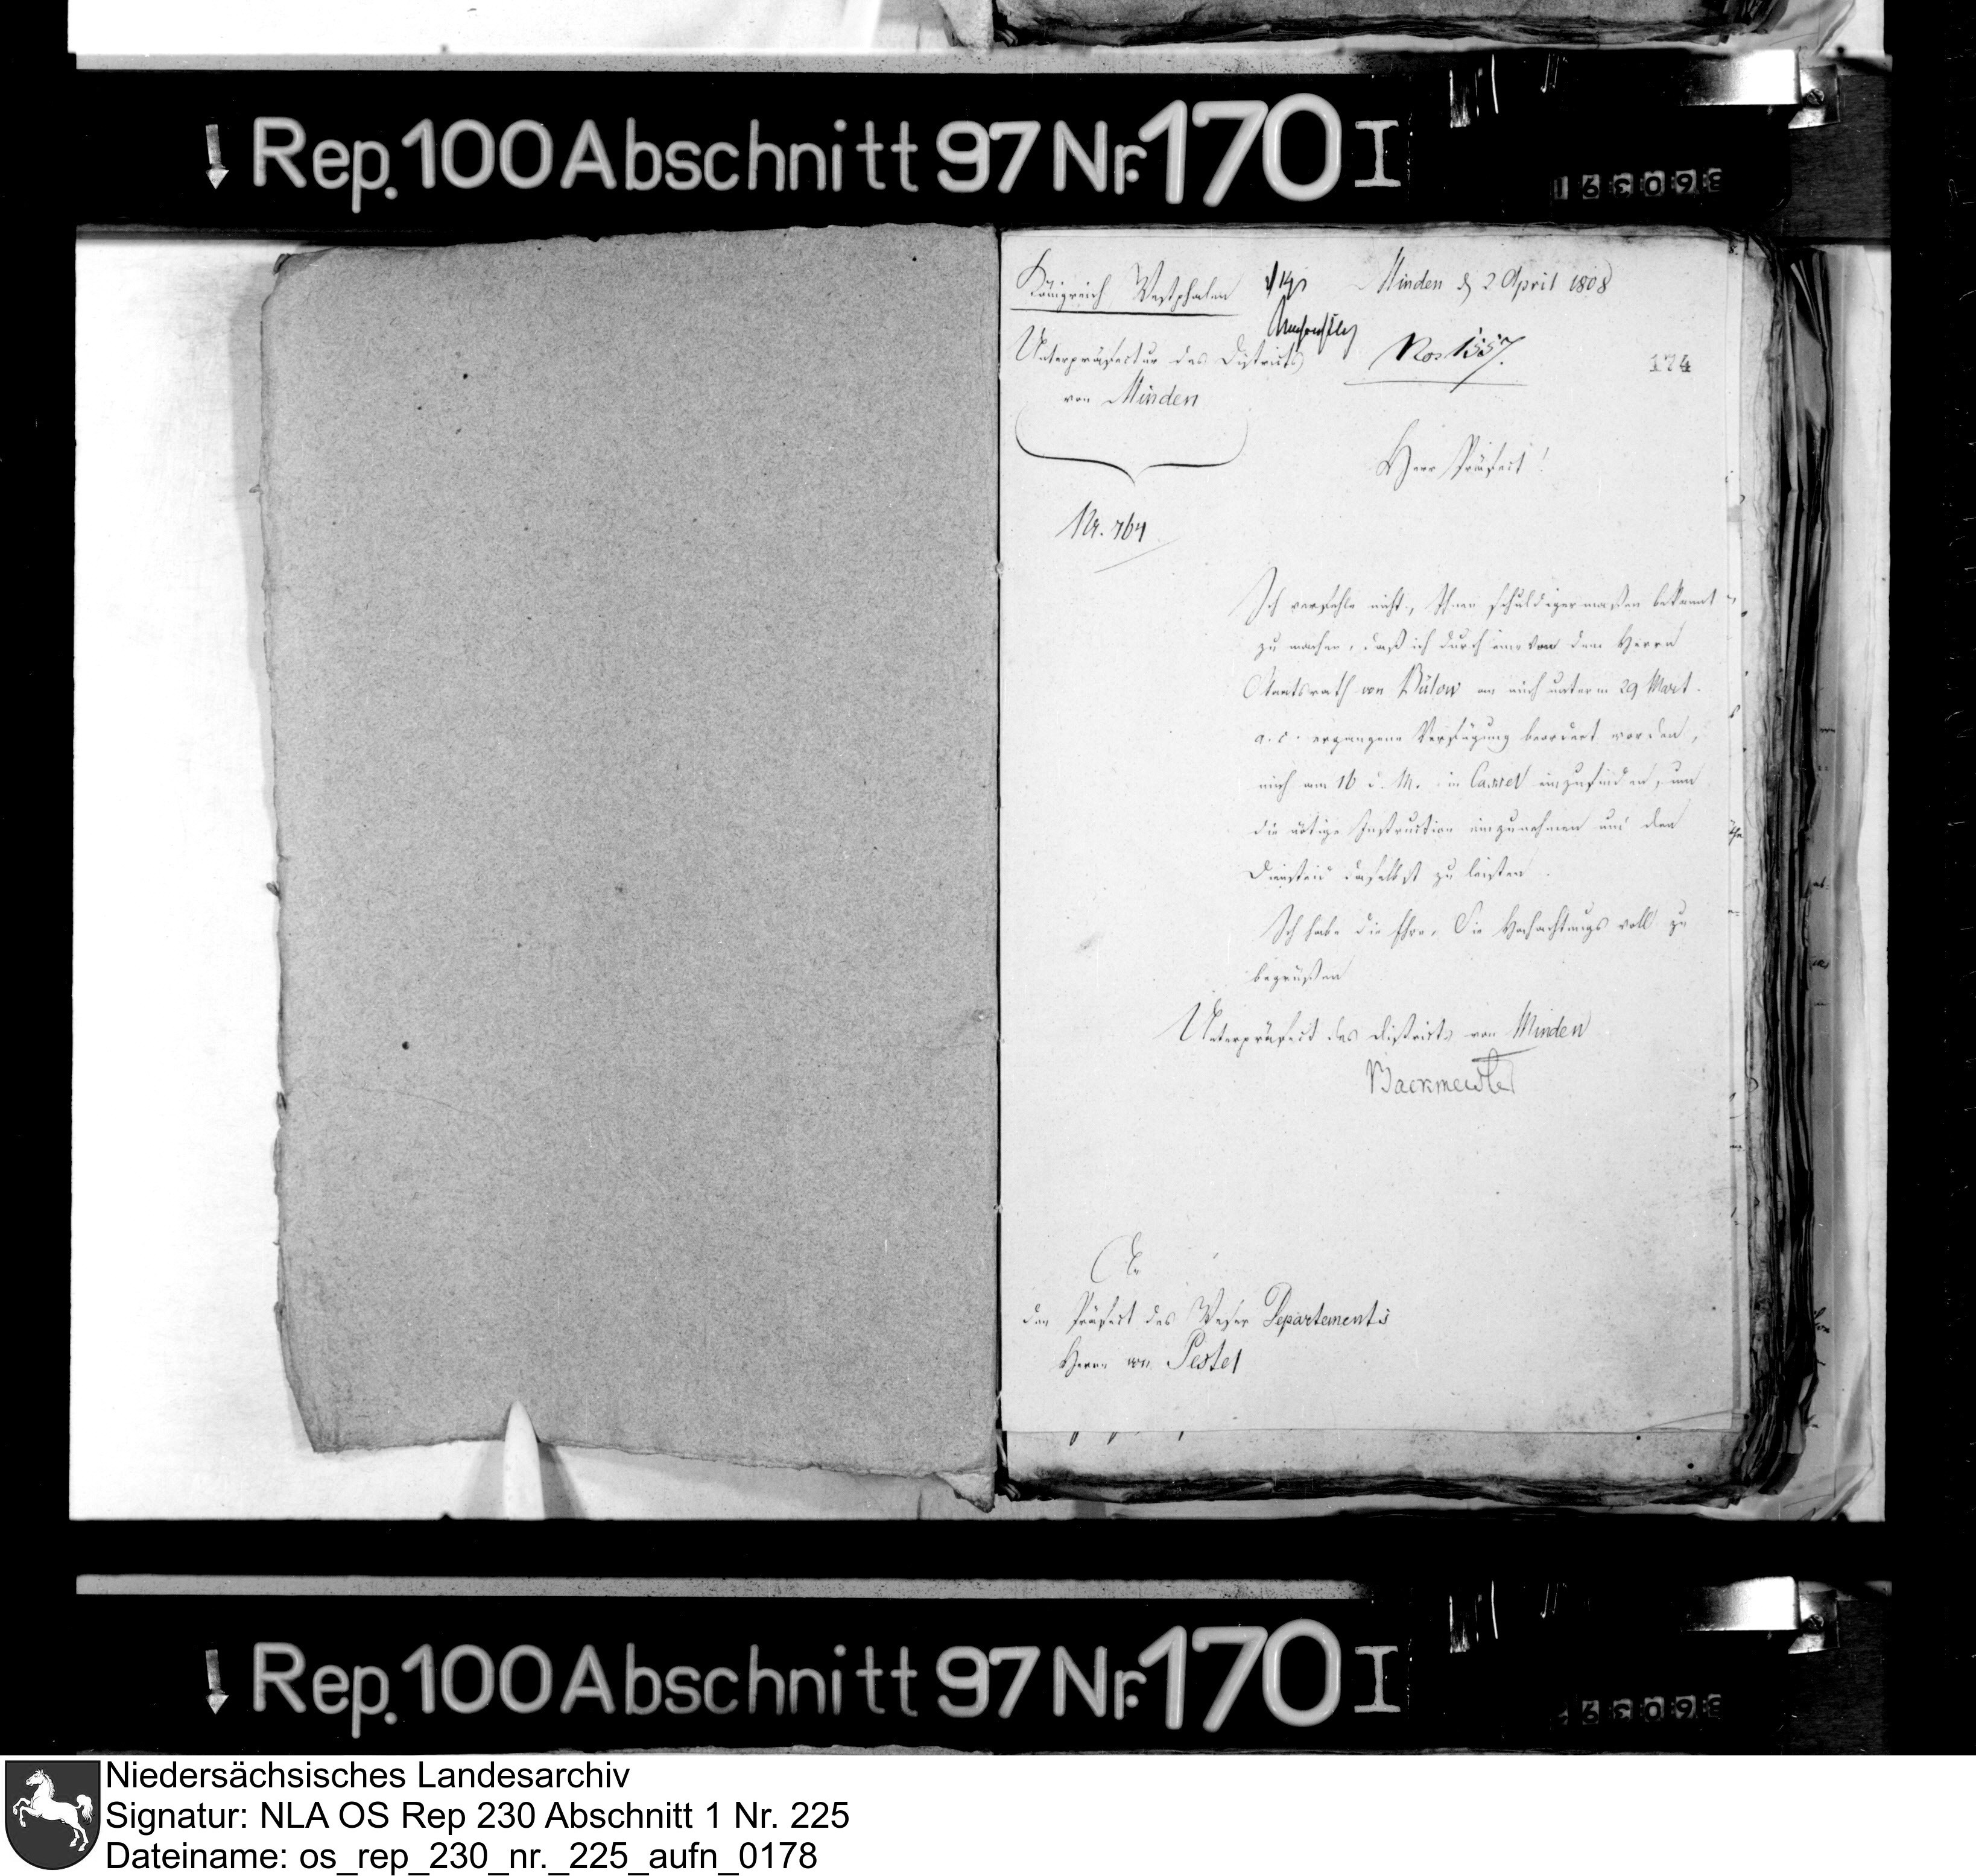 Rep. 100 Abschnitt 97 Nr. 170 I
Königreich Westphalen
Minden d 2 April 1808
Unterpräfectur des Districts
von Minden
Nos 1557.
174
Herr Präfect!
Nr. 764
Ich verfehle nicht, Ihnen schuldigermaßen bekannt
zu machen, daß ich durch eine von dem Herrn
Staatsrath von Bülow an mich unterm 29 Mart.
a. c. ergangene Verfügung beordert worden,
mich am 16 d. M. in Cassel einzufinden, um
die nötige Instruction einzunehmen und den
Diensteid daselbst zu leisten.
Ich habe die Ehre, Sie Hochachtungs voll zu
begrüßen
Unterpräfect des Districts von Minden
Backmeister
An
den Präfect des Weser Departements
Herrn von Pestel
Rep. 100 Abschnitt 97 Nr. 170 I
Niedersächsisches Landesarchiv
Signatur: NLA OS Rep 230 Abschnitt 1 Nr. 225
Dateiname: os_rep_230_nr._225_aufn_0178